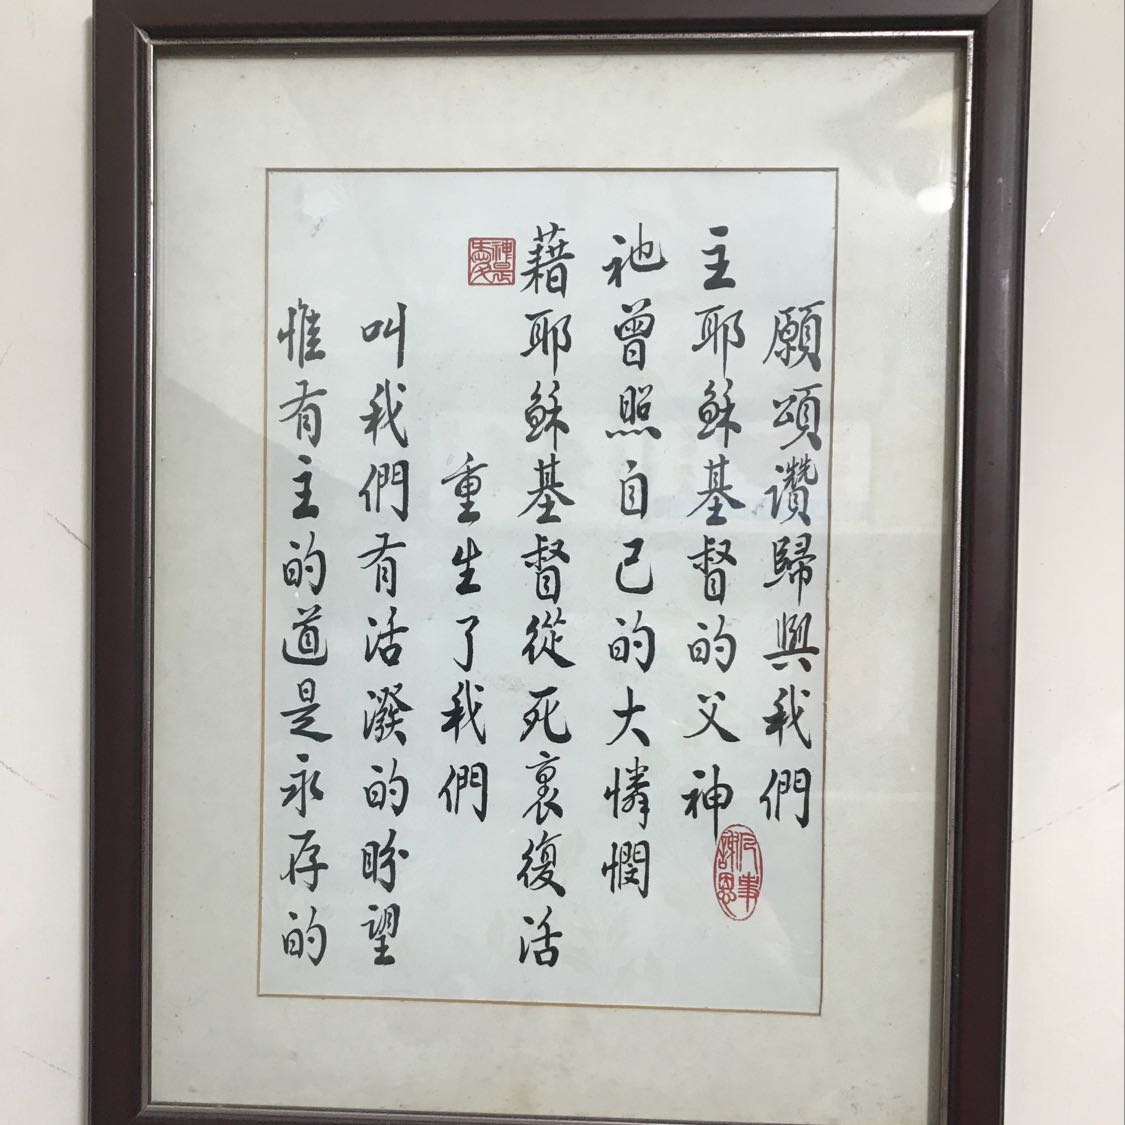 願頌讚歸與我們
主耶穌基督的父神
祂曾照自己的大憐憫
藉耶穌基督從死裏復活
重生了我們
叫我們有活潑的盼望
惟有主的道是永存的
凡事謝恩